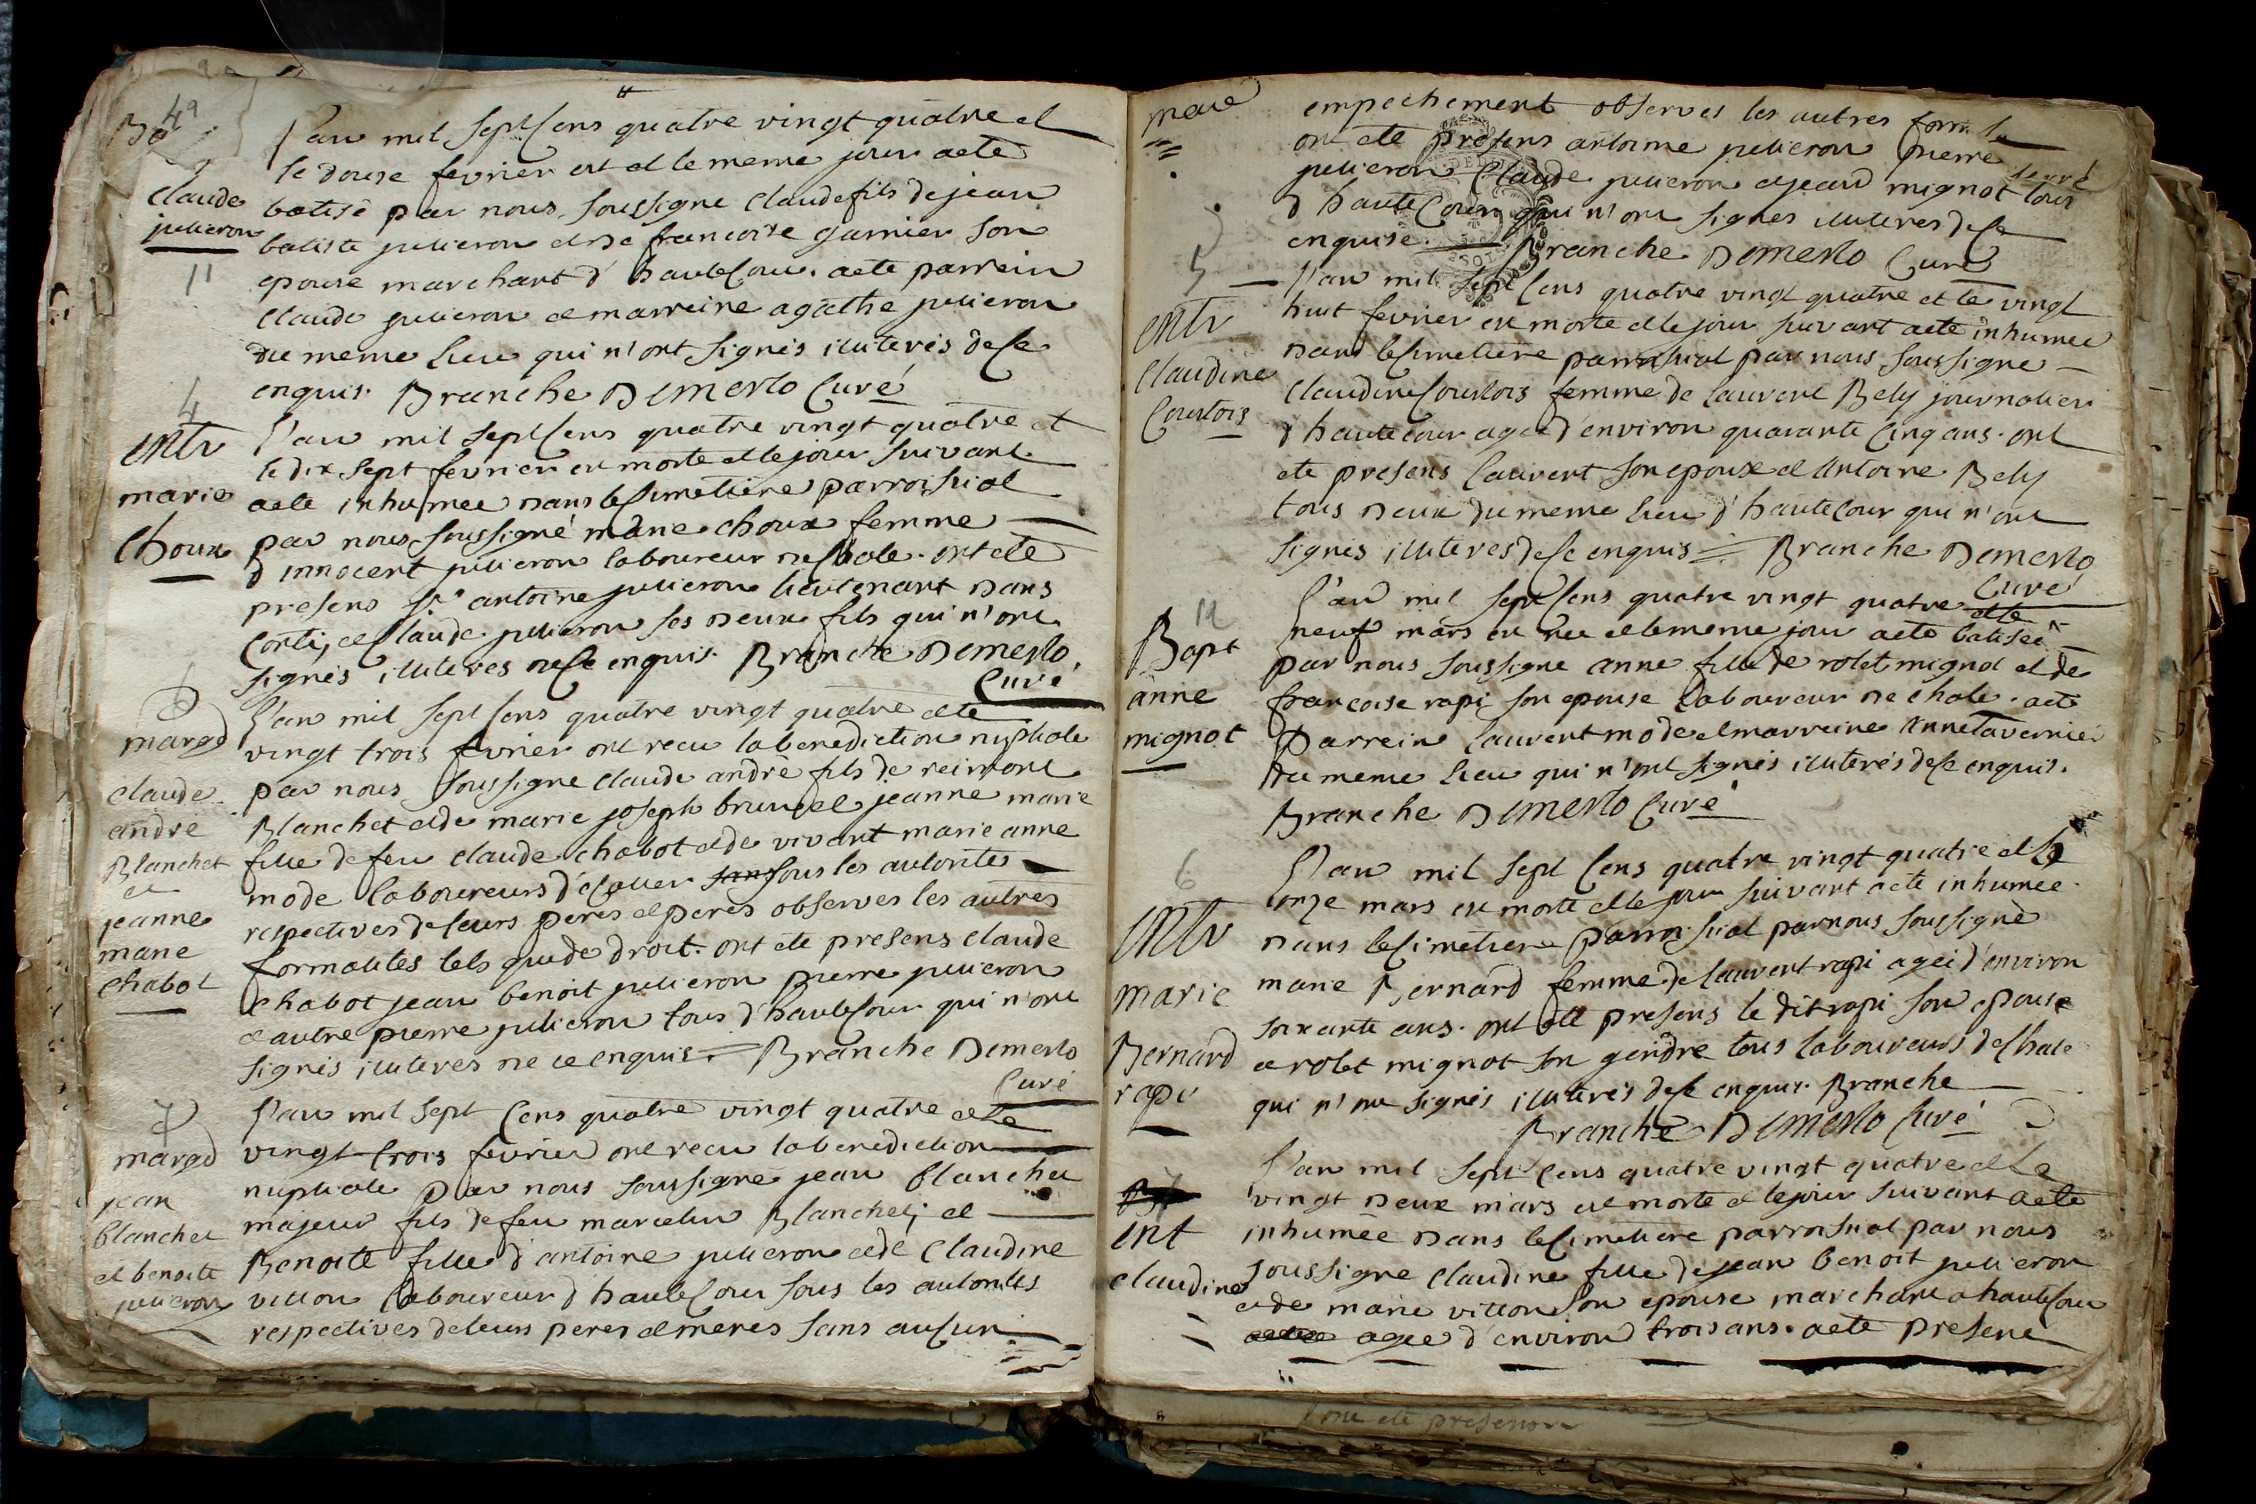 49
Ba
claude
julieron
11
L'an mil sept Cens quatre vingt quatre et
le douse fevrier est et le meme jour a ete
batisé par nous soussigne Claude fils de jean
batiste julieron et de francoise garnier son
epouse marchant d'hauteCour. a ete parrein
Claude julieron et marreine agathe julieron
du meme lieu qui n'ont signés illiterés de Ce
enquis. Branche Demerlo Curé
4
Entr
marie
Choux
L'an mil sept Cens quatre vingt quatre et
le dix sept fevrier est morte et le jour suivant
a ete inhumée dans le Simetiere parroissial
par nous soussigné marie choux femme
d'innocent julieron laboureur de Chale. ont ete
presens Sr. antoine julieron lieutenant dans
Conti, et Claude julieron ses deux fils qui n'ont
signés illiterés de Ce enquis. Branche Demerlo
Curé
6
mared
claude
andré
Blanchet
et
jeanne
marie
chabot
L'an mil sept Cens quatre vingt quatre et le
vingt trois fevrier ont recu la benediction nuptiale
par nous soussigne claude andrè fils de reimont
Blanchet et de marie joseph brun et jeanne marie
fille de feu claude chabot et de vivant marie anne
mode laboureurs d' sans sous les autorités
respectives de leurs peres et peres observes les autres
formalités tels que de droit. ont ete presens claude
chabot jean benoit julieron pierre julieron
et autre pierre julieron tous d'hauteCour qui n'ont
signés illiterés de ce enquis. Branche Demerlo
Curé
7
mared
jean
blanchet
et benoite
julieron
L'an mil sept Cens quatre vingt quatre et le
vingt trois fevrier ont recu la benediction
nuptiale par nous soussigne jean blanchet
majeur fils de feu marcelin Blanchet; et
Benoite fille d'antoine julieron et de Claudine
vitton laboureur d'hauteCour sous les autorités
respectives de leurs peres et meres sans auCun
mare
empechement observés les autres
ont été presens antoine julieron pierre
julieron Claude julieron et jean mignot tous
d'hauteCour qui n'ont signés illiterés de Ce
enquise. Branche Demerlo Curé
5
Entr
Claudine
Courtois
L'an mil sept Cens quatre vingt quatre et le vingt
huit fevrier est morte et le jour suivant a ete inhumée
dans le Simetiere parroissial par nous soussigne
Claudine Courtois femme de laurent Bely journalier
d'hautecour agée d'environ quarante Cinq ans. ont
ete presens laurent son epoux et Antoire Bely
tous deux du meme lieu d'hauteCour qui n'ont
signés illiterés de Ce enquis. Branche Demerlo
Curé
12
Bapt
anne
mignot
L'an mil sept Cens quatre vingt quatre et le
neuf mars est née et le meme jour a ete batisée
par nous soussigne anne fille de rolet mignot et de
francoise rapi son epouse laboureur de Chale. a ete
Parrein laurent mode et marreine Anne tavernier
du meme lieu qui n'ont signés illiterés de Ce enquis.
Branche Demerlo Curé
6
Entr
marie
Bernard
rapi
L'an mil sept Cens quatre vingt quatre et le
onze mars est morte et le jour suivant a ete inhumée
dans le Cimetiere parroissial par nous soussigné
marie Bernard femme de laurent rapi ageé d'environ
soixante ans. ont ete presens le dit rapi son epouse
et rolet mignot son gendre tous laboureurs de Chale
qui n'ont signés illiterés de Ce enquis. Branche
Branche Demerlo Curé
7
Ent
claudine
L'an mil sept Cens quatre vingt quatre et Le
vingt deux mars est morte et le jour suivant a ete
inhumée dans le Cimetiere parroissial par nous
soussigne claudine fille de jean benoit julieron
et de marie vitton son epouse marchant a hauteCour
agée d'environ trois ans. a ete present